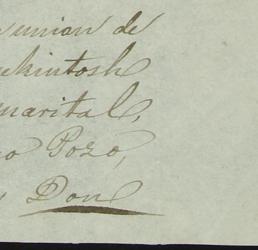 union de
ckintosh
marital,
o Pozo,
y Don